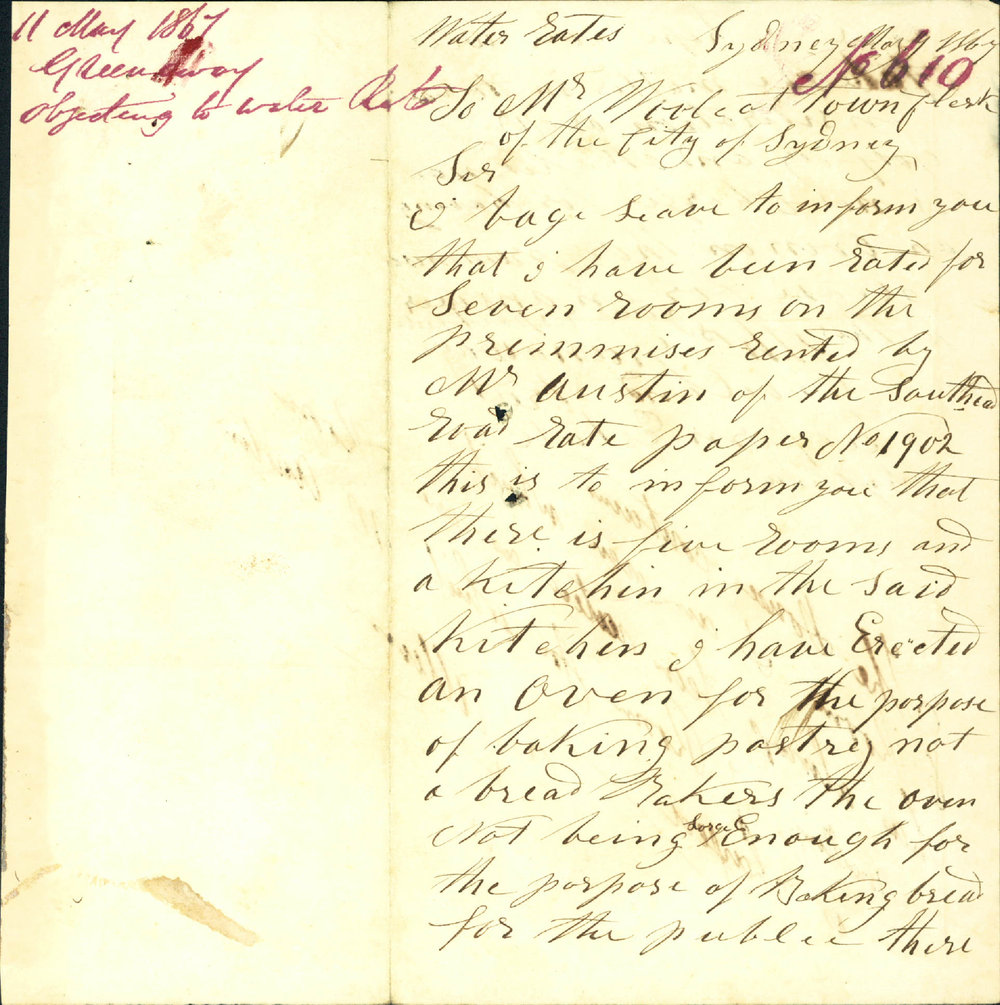 11 May 1867
Greenaway
objecting to water Rate
Water Rates Sydney May 1867
No 610
To Mr Woolcot Town Clerk
of the City of Sydney
Sir
I bage leave to inform you
that I have been rated for
Seven rooms on the
premmises rented by
Mr Austin of the Southead
road rate paper No 1902
this is to inform you that
there is five rooms and
a Kitchin in the said
Kitchen I have Erected
an oven for the porpose
of baking pastrey not
a bread Bakers the oven
Not being large Enough for
the porpose of Baking bread
for the public there